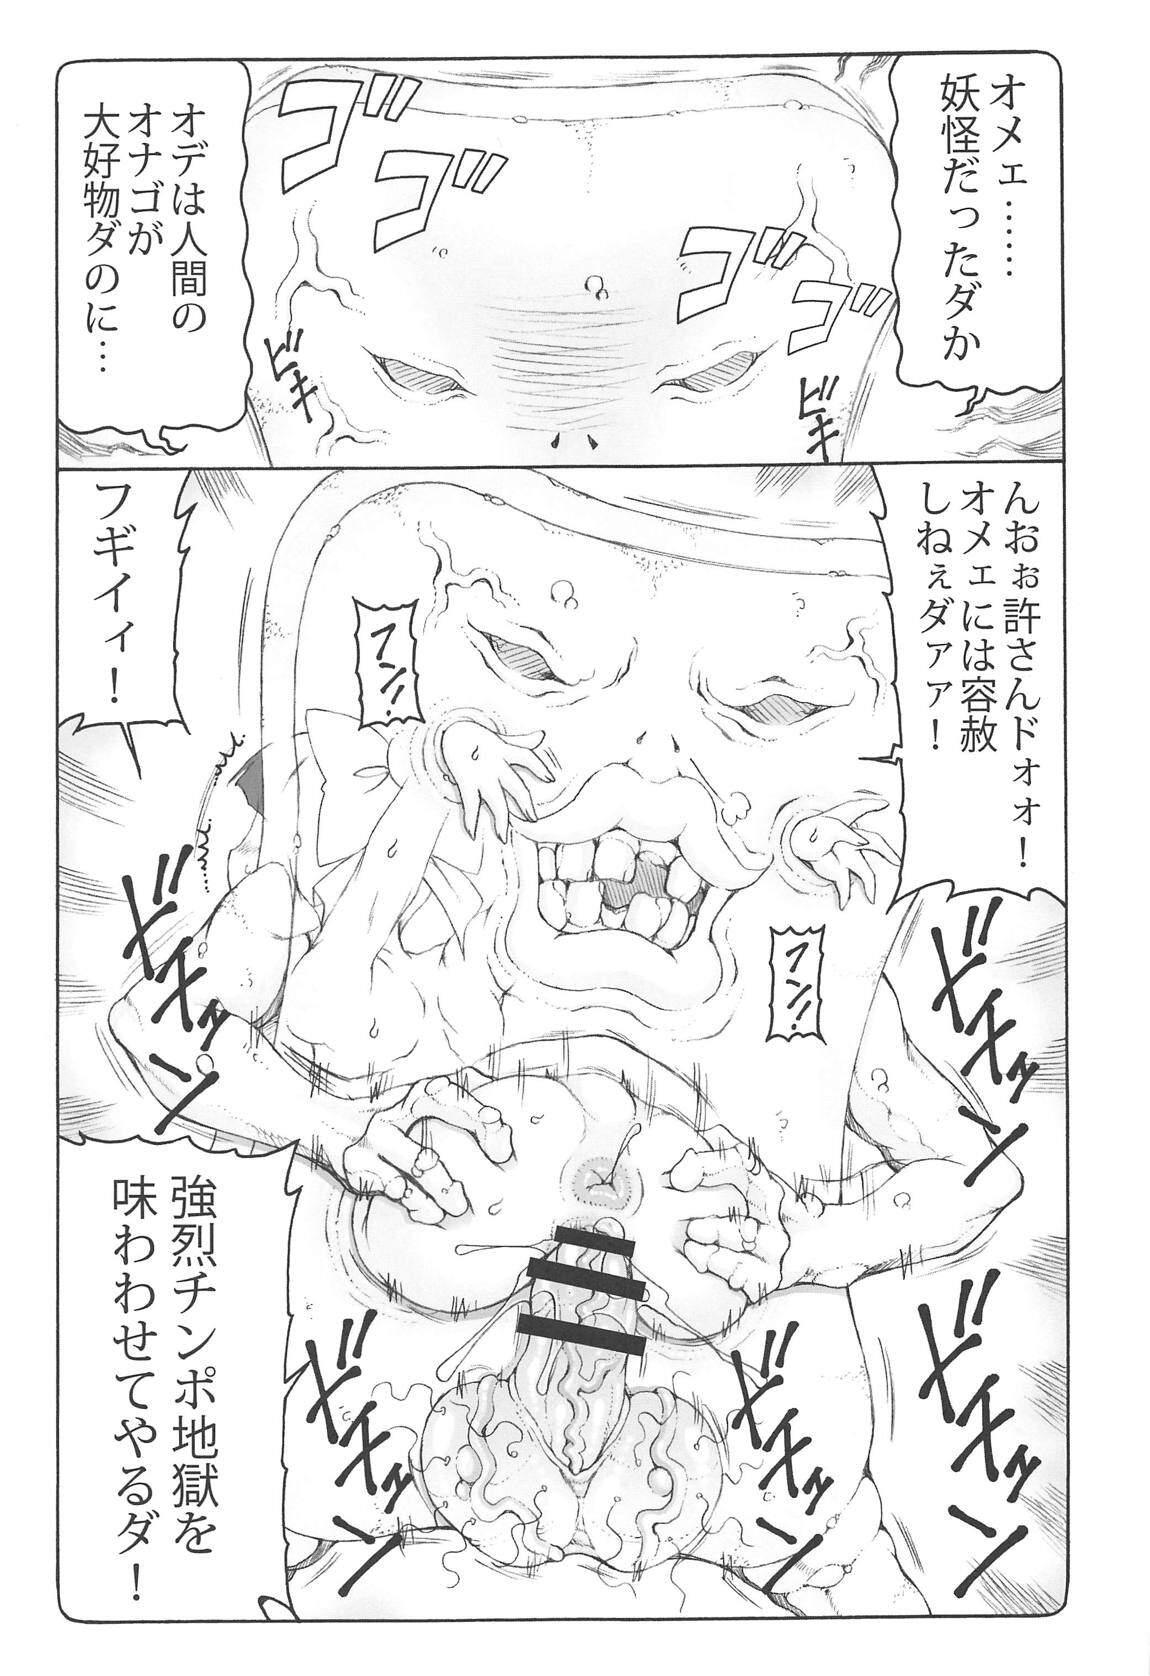 オメェ……
妖怪だったダか
オデは人間の
オナゴが
大好物ダのに…
ゴゴ
ゴゴ
ビキ
ビキ
んおぉ許さんドォォ!
オメェには容赦
しねぇダァァ!
フギイィ!
フン!
フン!
ドチッン
ドチッン
ドチッン
ドチッン
ドチッン
強烈チンポ地獄を
味わわせてやるダ!